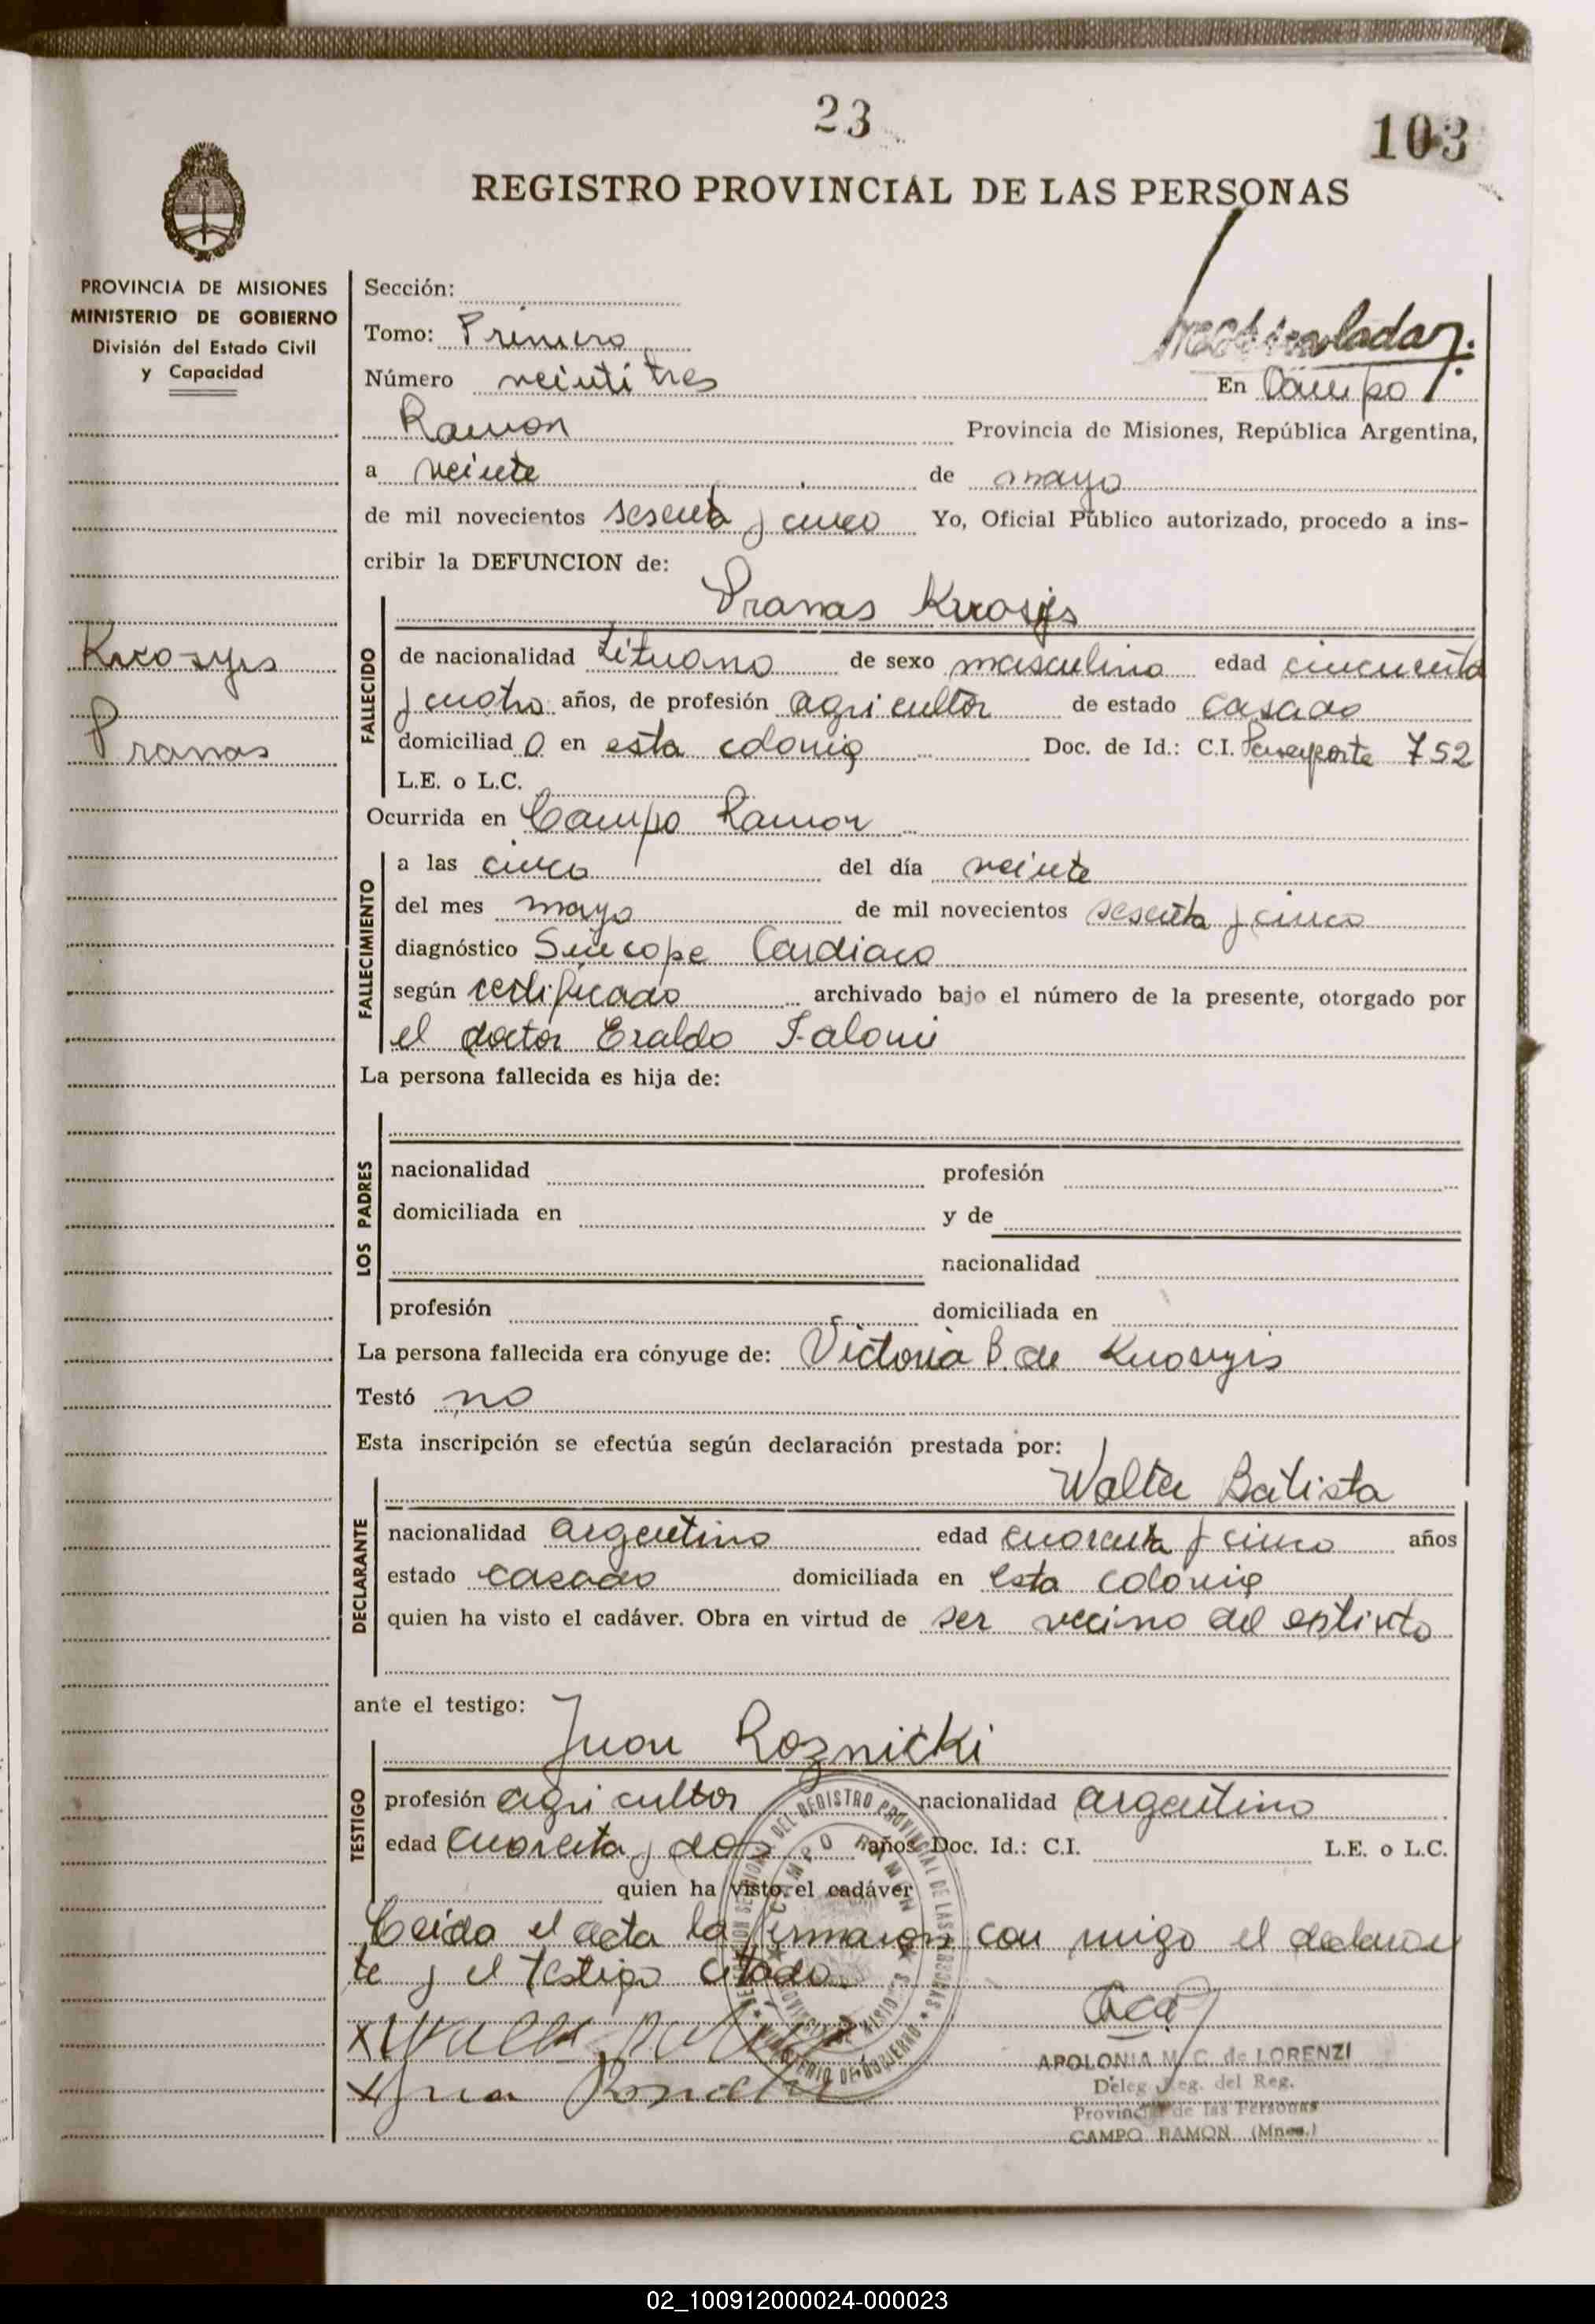 23
103
REGISTRO PROVINCIAL DE LAS PERSONAS
PROVINCIA DE MISIONES
MINISTERIO DE GOBIERNO
División del Estado Civil
y Capacidad
Pranas
Sección:
Tomo: Primero
Número veintitres
En Campo
Ramon Provincia de Misiones, República Argentina,
a veinte de mayo
de mil novecientos sesenta y cinco Yo, Oficial Público autorizado, procedo a ins-
cribir la DEFUNCION de:
Pranas
FALLECIDO
de nacionalidad Lituano de sexo masculino edad cincuenta
y cuatro años, de profesión agricultor de estado casado
domiciliad o en esta colonia Doc. de Id.: C.I. Pasaporte 752
L.E. o L.C.
Ocurrida en Campo Ramon
FALLECIMIENTO
a las cinco del día veinte
del mes mayo de mil novecientos sesenta y cinco
diagnóstico Sincope Cardiaco
según certificado archivado bajo el número de la presente, otorgado por
el doctor Eraldo
La persona fallecida es hija de:
LOS PADRES
nacionalidad profesión
domiciliada en y de
nacionalidad
profesión domiciliada en
La persona fallecida era cónyuge de: Victoria B. de
Testó no
Esta inscripción se efectúa según declaración prestada por:
Walter Batista
DECLARANTE
nacionalidad argentino edad cuarenta y cinco años
estado casado domiciliada en esta colonia
quien ha visto el cadáver. Obra en virtud de ser vecino del extinto
ante el testigo:
Juan Roznicki
TESTIGO
profesión agricultor nacionalidad argentino
edad cuarenta y dos años Doc. Id.: C.I. L.E. o L.C.
quien ha visto el cadáver
Leida el acta la firmaron con migo el declaran
te y el testigo citado
APOLONIA M. C. de LORENZI
Deleg Reg. del Reg.
Provincial de las Personas
CAMPO RAMON (Mnes.)
02_100912000024-000023